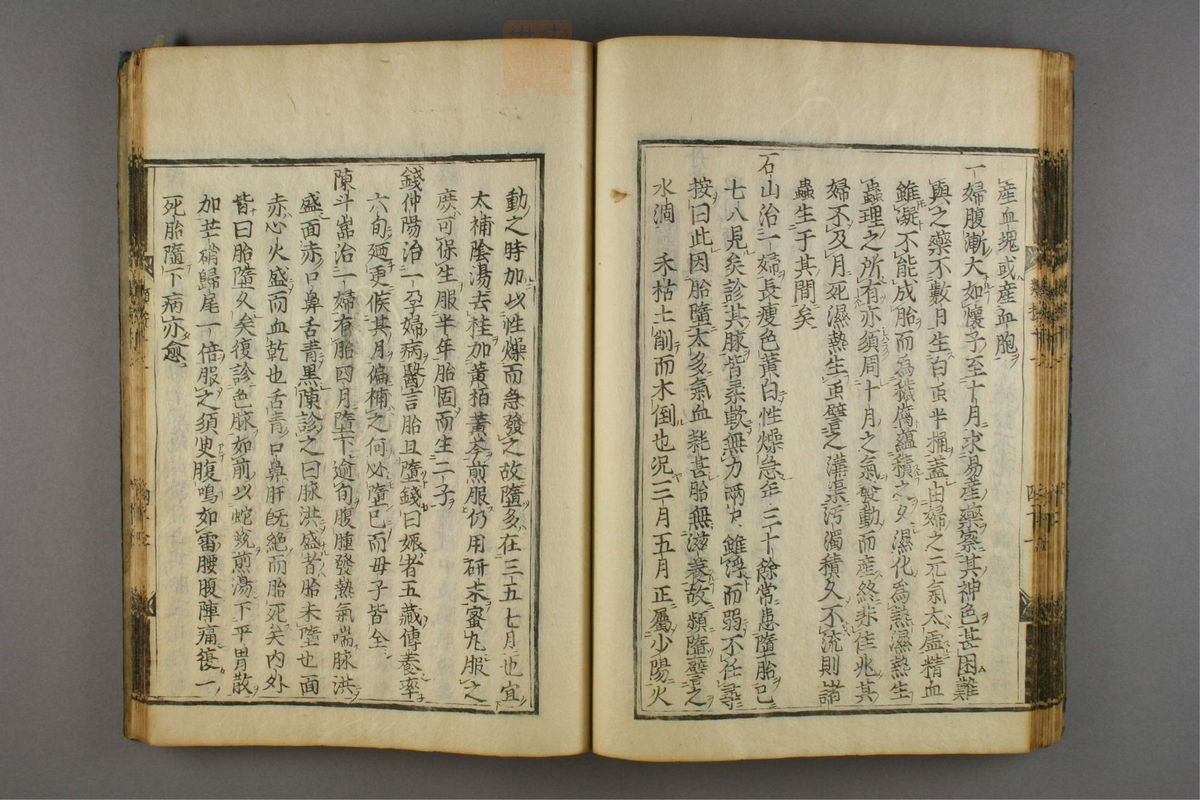 産血塊或産血胞
一婦腹漸大如懷子至十月求易産藥察其神色甚困難
與之藥不數日生白虫半桶蓋由婦之元氣太虛精血
雖凝不能成胎而爲穢腐蘊積之久濕化爲熱濕熱生
蟲理之所有亦須周十月之氣發動而産終非佳兆其
婦不及月死濕熱生虫譬之溝渠污濁積久不流則諸
蟲生于其間矣
石山治一婦長瘦色黄白性燥急年三十餘常患墮胎已
七八見矣診其脉皆柔軟無力兩寸雖浮而弱不任尋
按曰此因胎墮太多氣血耗甚胎無滋養故頻墮譬之
水涸 禾枯土削而木倒也況三月五月正屬少陽火
動之時加以性燥而急發之故墮多在三五七月也宜
太補隂湯去桂加黄栢黄芩煎服仍用研茶蜜丸服之
庶可保生服半年胎固而生二子
錢仲陽治一孕婦病醫言胎且墮錢曰娠者五藏傳養率
六旬廼更候其月偏補之何必墮已而母子皆全
陳斗嵓治一婦有胎四月墮下逾旬腹腫發熱氣喘脉洪
盛面赤口鼻舌青黒陳診之曰脉洪盛者胎未墮也面
赤心火盛而血乾也舌青口鼻肝既絶而胎死矣内外
皆曰胎墮久矣復診色脉如前以蛇蛻煎湯下平胃散
加芒硝歸尾一倍服之須臾腹鳴如雷腰腹陣痛復一
死胎墮下病亦愈